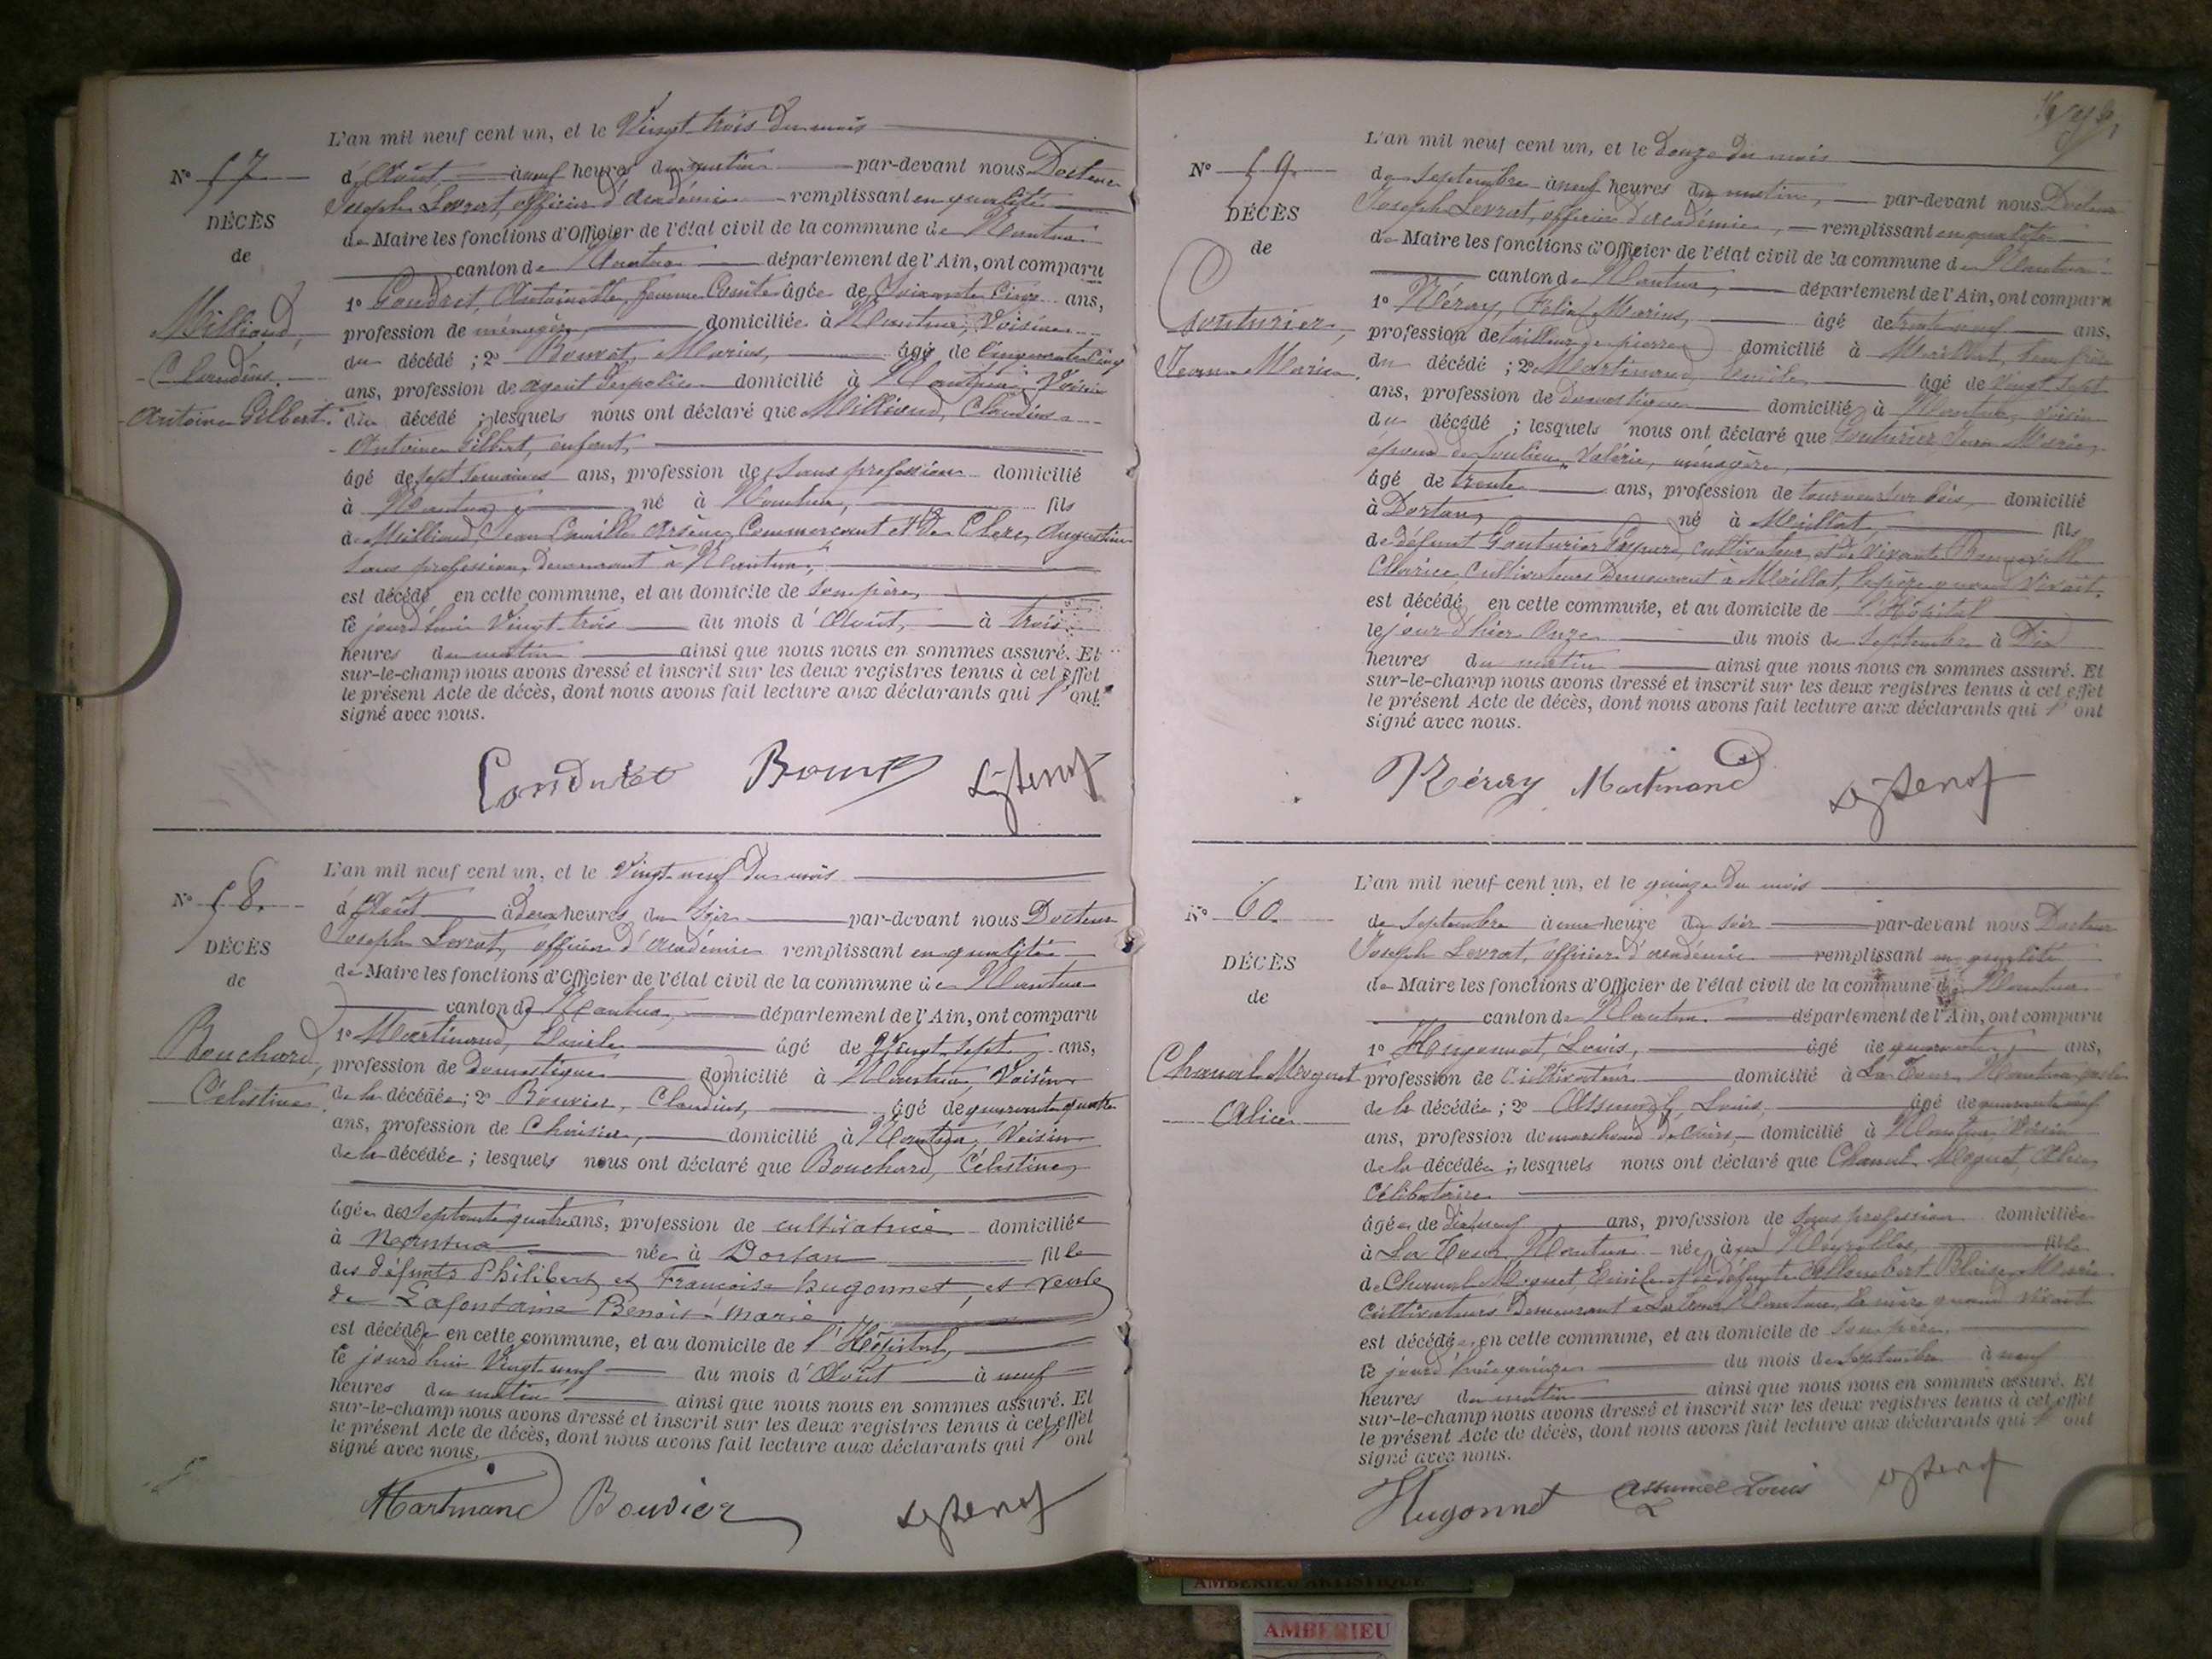 L'an mil neuf cent un, et le Vingt trois du mois
N° 57
d'Août, à neuf heures du matin par-devant nous Docteur
DÉCÈS
Joseph Levrat, officier d'Académie remplissant en qualité
de
de Maire les fonctions d'Officier de l'état civil de la commune de Nantua
canton de Nantua département de l'Ain, ont comparu
Milliand,
1° Antoinette, femme âgée de Soixante Cinq ans,
profession de ménagère, domiciliée à Nantua, Voisine
Claudius
du décédé ; 2° Bouvet, Marius, âgé de Cinquante Cinq
ans, profession de agent de police domicilié à Nantua, Voisin
Antoine Gilbert.
du décédé ; lesquels nous ont déclaré que Milliand, Claudius
Antoine Gilbert, enfant,
âgé de sept semaines ans, profession de sans profession domicilié
à Nantua, né à Nantua, fils
de Milliand, Jean Camille Arsène, Commerçant et de Clerc, Augustine
sans profession, demeurant à Nantua,
est décédé en cette commune, et au domicile de son père,
le jourd'hui Vingt trois du mois d'Août, à trois
heures du matin ainsi que nous nous en sommes assuré. Et
sur-le-champ nous avons dressé et inscrit sur les deux registres tenus à cet effet
le présent Acte de décès, dont nous avons fait lecture aux déclarants qui l'ont
signé avec nous.
L'an mil neuf cent un, et le Vingt-neuf du mois
N° 58.
d'Août à deux heures du soir par-devant nous Docteur
DÉCÈS
Joseph Levrat, officier d'Académie remplissant en qualité
de
de Maire les fonctions d'Officier de l'état civil de la commune de Nantua
canton de Nantua, département de l'Ain, ont comparu
Bouchard,
1° Martinand, Emile âgé de Vingt sept ans,
profession de Domestique domicilié à Nantua, Voisin
Célestine
de la décédée ; 2° Bouvier, Claudius, âgé de quarante quatre
ans, profession de Chaisier, domicilié à Nantua, Voisin
de la décédée ; lesquels nous ont déclaré que Bouchard, Célestine,
âgée de septante quatre ans, profession de cultivatrice domiciliée
à Nantua née à Dortan fille
des défunts Philibert et Françoise hugonnet, et veuve
de Lafontaine Benoit-Marie
est décédée en cette commune, et au domicile de l'Hôpital,
le jourd'hui Vingt-neuf du mois d'Août à neuf
heures du matin ainsi que nous nous en sommes assuré. Et
sur-le-champ nous avons dressé et inscrit sur les deux registres tenus à cet effet
le présent Acte de décès, dont nous avons fait lecture aux déclarants qui l'ont
signé avec nous.
Martinand Bouvier
L'an mil neuf cent un, et le Douze du mois
N° 59
de Septembre à neuf heures du matin, par-devant nous Docteur
DÉCÈS
Joseph Levrat, officier d'académie, remplissant en qualité
de
de Maire les fonctions d'Officier de l'état civil de la commune de Nantua
canton de Nantua, département de l'Ain, ont comparu
Gouturier,
1° Néray, Félix Marius, âgé de trente neuf ans,
profession de tailleur de pierres domicilié à Meillat,
Jean Marie.
du décédé ; 2° Martinand, Emile âgé de Vingt sept
ans, profession de domestique domicilié à Nantua, voisin
du décédé ; lesquels nous ont déclaré que Gouturier Jean Marie,
époux de Valérie, ménagère,
âgé de trente ans, profession de tourneur sur bois, domicilié
à Dortan, né à Meillat, fils
de défunt Gouturier cultivateur, et de vivante
cultivateurs demeurant à Meillat, le père quand vivait.
est décédé en cette commune, et au domicile de l'Hôpital
le jour d'hier Onze du mois de Septembre à Dix
heures du matin ainsi que nous nous en sommes assuré. Et
sur-le-champ nous avons dressé et inscrit sur les deux registres tenus à cet effet
le présent Acte de décès, dont nous avons fait lecture aux déclarants qui l'ont
signé avec nous.
Néray Martinand
L'an mil neuf cent un, et le quinze du mois
N° 60
de Septembre à une heure du soir par-devant nous Docteur
DÉCÈS
Joseph Levrat, officier d'académie remplissant en qualité
de
de Maire les fonctions d'Officier de l'état civil de la commune de Nantua
canton de Nantua département de l'Ain, ont comparu
Chanal Moguet
1° Hugonnet, Louis, âgé de quarante ans,
profession de Cultivateur domicilié à La Tour, Nantua
Alice
de la décédée ; 2° Assumel, Louis, âgé de quarante neuf
ans, profession de marchand de domicilié à Nantua, Voisin
de la décédée ; lesquels nous ont déclaré que Chanal Moguet, Alice,
Célibataire
âgée de dix neuf ans, profession de sans profession domiciliée
à La Tour, Nantua née à Neyrolles, fille
de Chanal Moguet, Emile et de défunte Allombert Blaise, Marie
Cultivateurs demeurant à La Tour Nantua, la mère quand vivait
est décédée en cette commune, et au domicile de son père,
le jourd'hui quinze du mois de Septembre à neuf
heures du matin ainsi que nous nous en sommes assuré. Et
sur-le-champ nous avons dressé et inscrit sur les deux registres tenus à cet effet
le présent Acte de décès, dont nous avons fait lecture aux déclarants qui l'ont
signé avec nous.
Hugonnet Assumel Louis
AMBERIEU ARTISTIQUE
AMBERIEU